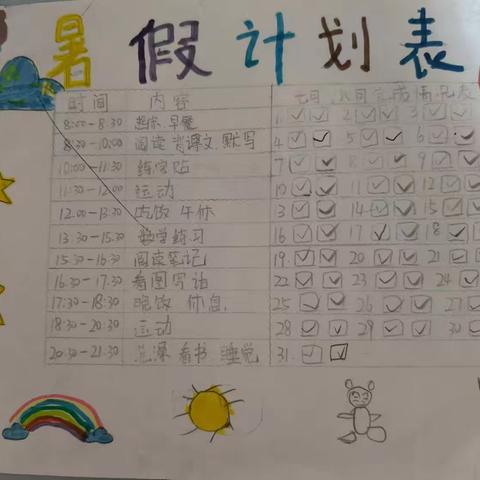 暑假计划表
时间 内容 七月、八月完成情况表
8:00-8:30 起床 早餐 1 2 3
8:30-10:00 阅读 背课文 默写 4 5 6
10:00-11:30 练字帖 7 8 9
11:30-12:00 运动 10 11 12
12:00-13:30 吃饭 午休 13 14 15
13:30-15:30 数学练习 16 17 18
15:30-16:30 阅读笔记 19 20 21
16:30-17:30 看图写话 22 23 24
17:30-18:30 晚饭 休息 25 26 27
18:30-20:30 运动 28 29 30
20:30-21:30 洗澡 看书 睡觉 31